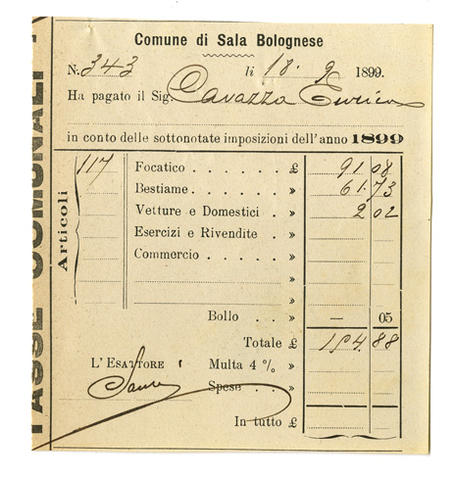 TASSE COMUNALI
Comune di Sala Bolognese
N. 343 li 18. 9 1899.
Ha pagato il Sig. Cavazza Enrico
in conto delle sottonotate imposizioni dell'anno 1899
Articoli
117 Focatico . . . . . . £ 91 08
Bestiame . . . . . . » 61 73
Vetture e Domestici . » 2 02
Esercizi e Rivendite . »
Commercio . . . . . »
»
»
Bollo . . » — 05
Totale £ 154. 88
L'ESATTORE Multa 4 % »
Spese . »
In tutto £